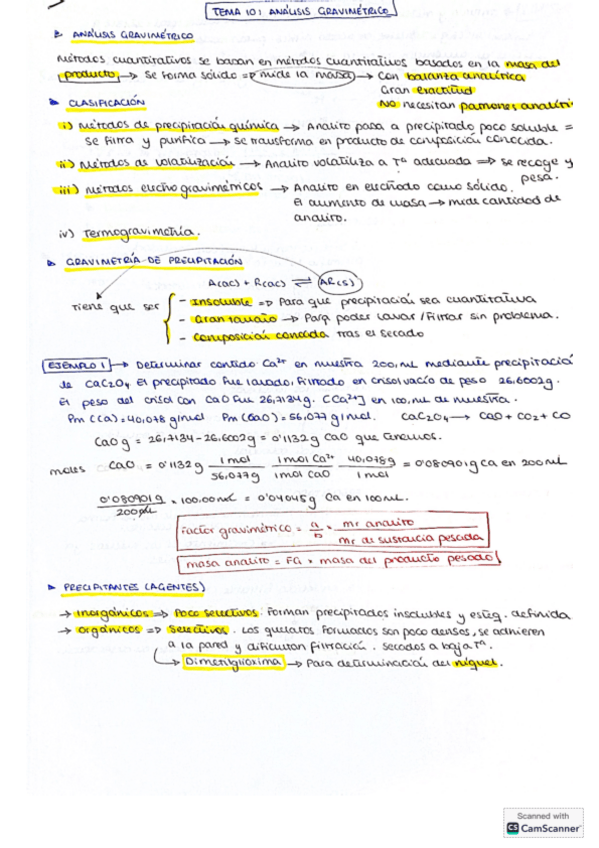 TEMA 10: ANÁLISIS GRAVIMÉTRICO
ANÁLISIS GRAVIMÉTRICO
Métodos cuantitativos se basan en métodos cuantitativos basados en la masa del
producto → Se forma sólido => mide la masa → Con balanza analítica
Gran exactitud
NO necesitan patrones analíti
CLASIFICACIÓN
i) Métodos de precipitación química → Analito pasa a precipitado poco soluble =
se filtra y purifica → se transforma en producto de composición conocida.
ii) Métodos de volatilización → Analito volatiliza a Tª adecuada => se recoge y
pesa.
iii) Métodos electrogravimétricos → Analito en electrodo como sólido.
El aumento de masa → mide cantidad de
analito.
iv) Termogravimetría.
GRAVIMETRÍA DE PRECIPITACIÓN
A(ac) + R(ac) ⇌ AR(s)
Tiene que ser
- Insoluble => Para que precipitación sea cuantitativa
- Gran tamaño → Para poder lavar/filtrar sin problema.
- Composición conocida tras el secado
EJEMPLO 1 → Determinar contido Ca²⁺ en muestra 200,mL mediante precipitació
de CaC₂O₄ El precipitado fue lavado, filtrado en crisol vacío de peso 26,6002g.
El peso del crisol con CaO fue 26,7134g. [Ca²⁺] en 100,mL de muestra.
Pm (Ca) = 40,078 g/mol Pm (CaO) = 56,077 g/mol. CaC₂O₄ → CaO + CO₂ + CO
CaO g = 26,7134 - 26,6002g = 0'1132g CaO que tenemos.
moles CaO = 0'1132g 1 mol / 56,077g 1 mol Ca²⁺ / 1 mol CaO 40,078g / 1 mol = 0'080901g Ca en 200mL
0'080901g / 200mL × 100,00mL = 0'04045g Ca en 100mL.
Factor gravimétrico = a/b × mr analito / mr de sustancia pesada
masa analito = FG × masa del producto pesado
PRECIPITANTES (AGENTES)
→ Inorgánicos => Poco selectivos. Forman precipitados insolubles y esteq. definida
→ orgánicos => Selectivos. Los quelatos formados son poco densos, se adhieren
a la pared y dificultan filtración. Secados a baja Tª.
Dimetilglioxima → Para determinación del níquel.
Scanned with
CS CamScanner